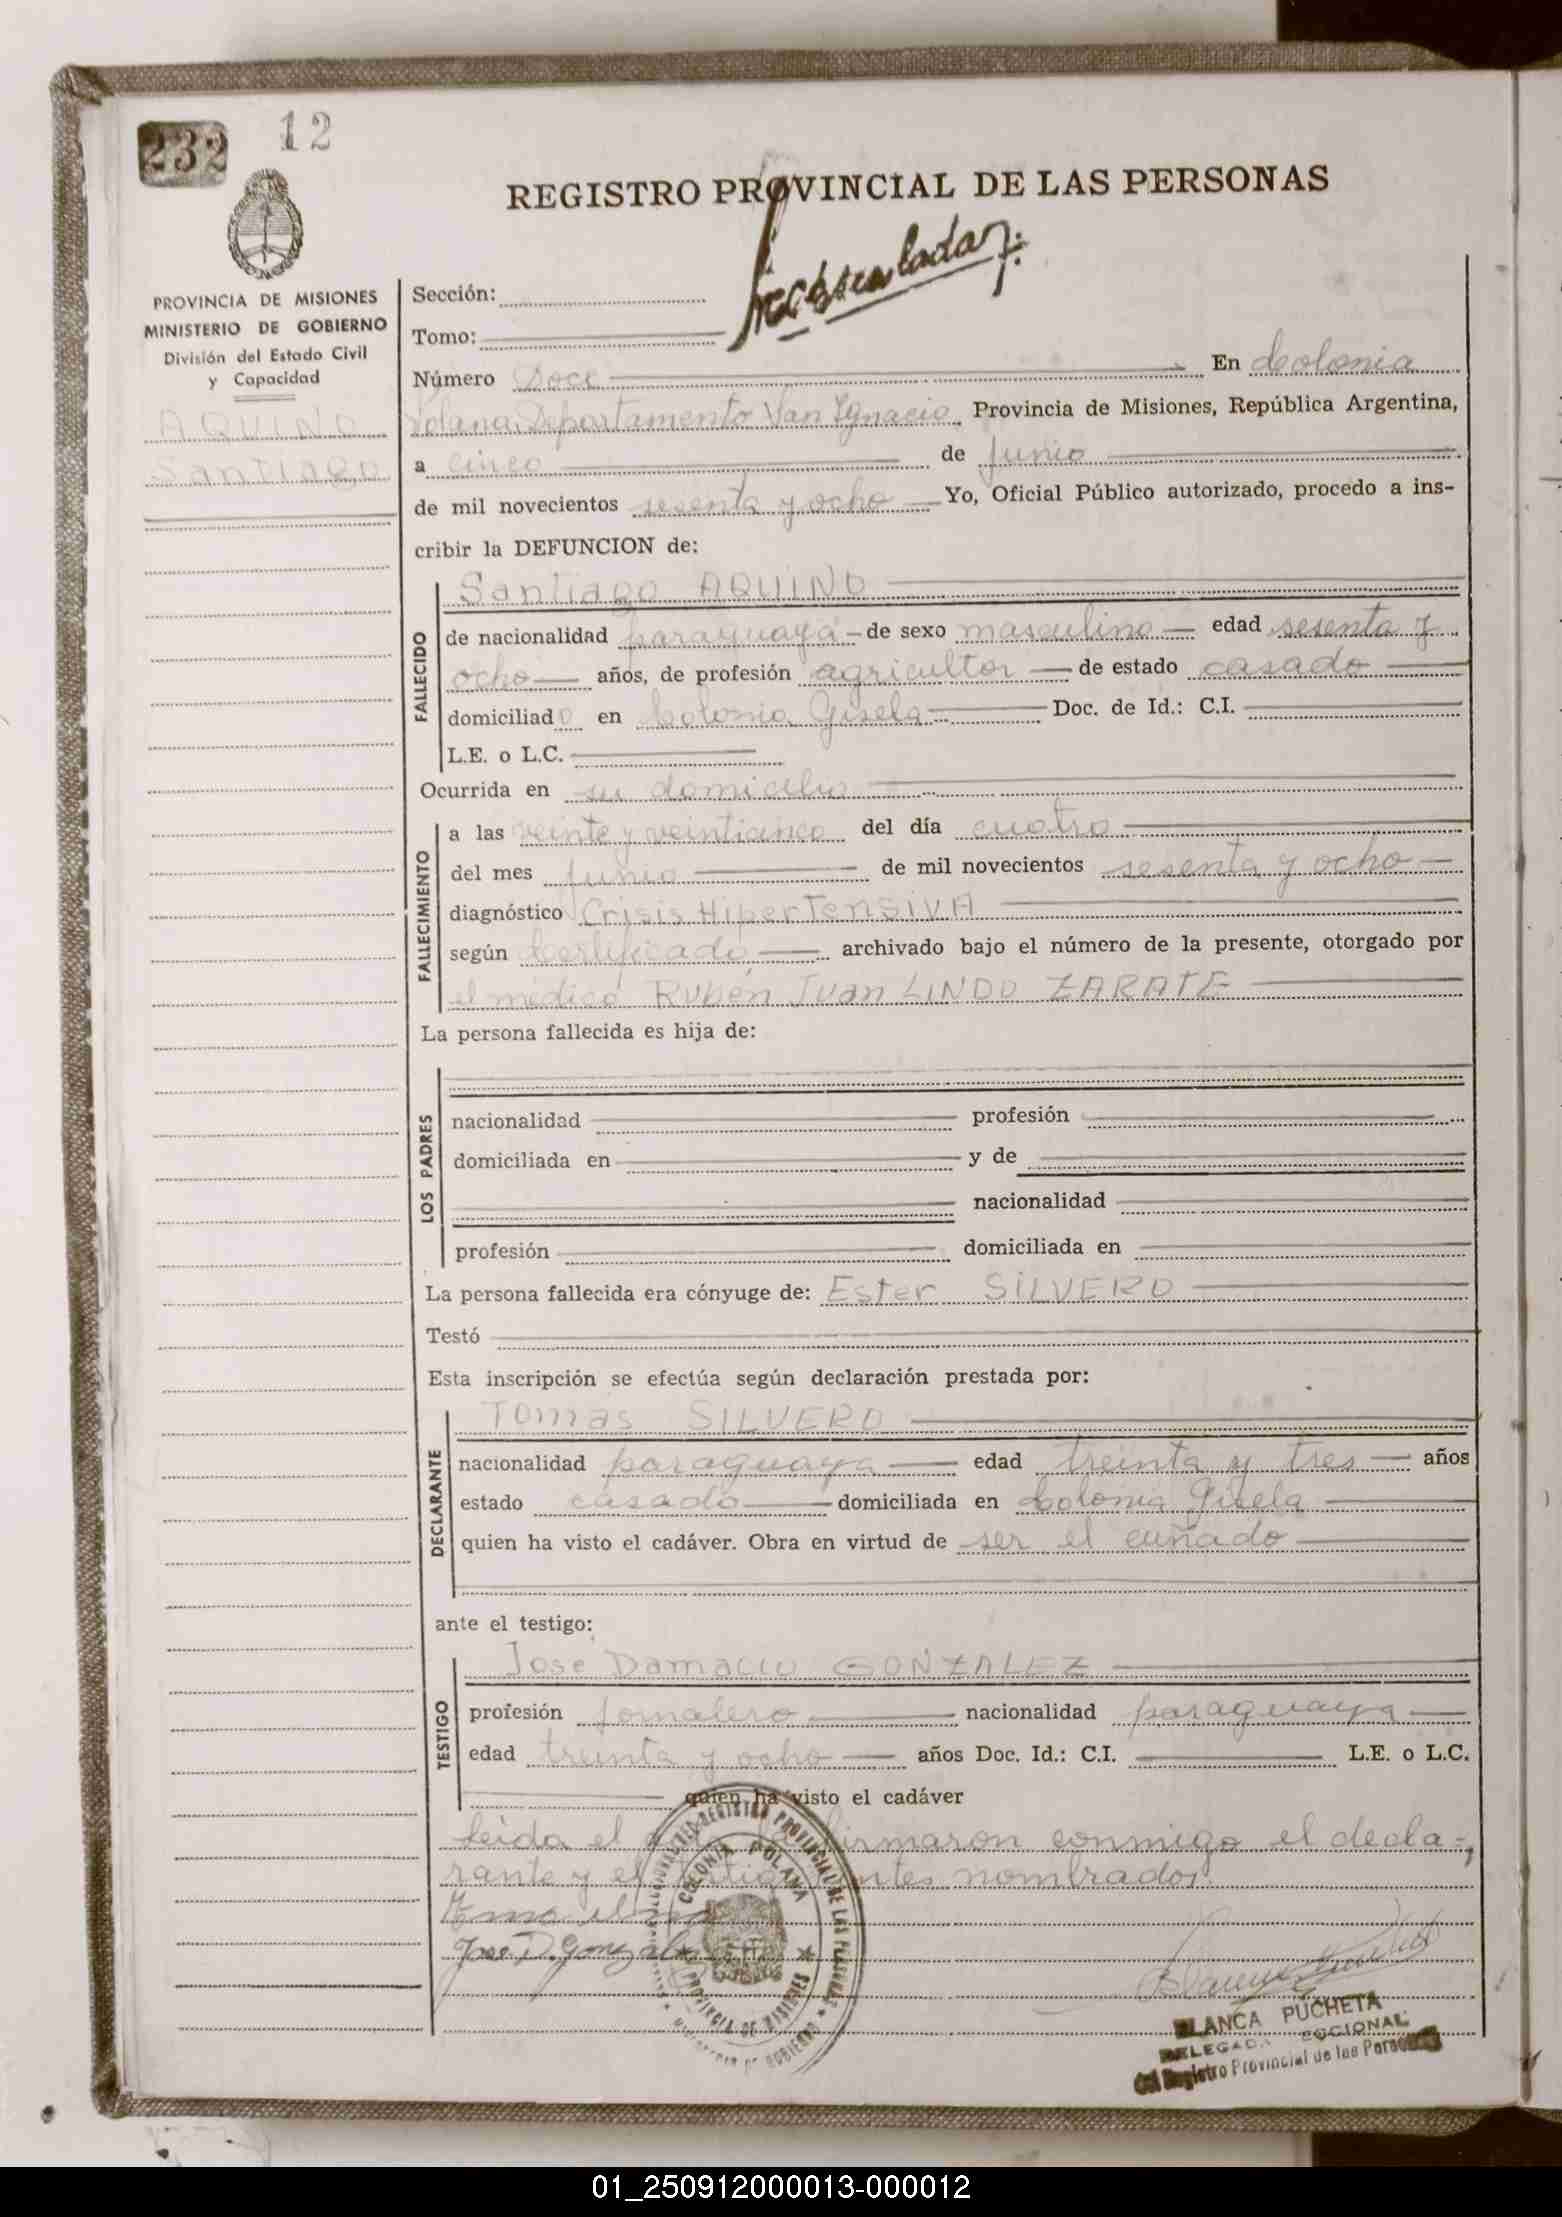 232 12
REGISTRO PROVINCIAL DE LAS PERSONAS
PROVINCIA DE MISIONES
MINISTERIO DE GOBIERNO
División del Estado Civil
y Capacidad
AQUINO
Santiago
Sección:
Tomo:
Número Doce En Colonia
Polana, Departamento San Ignacio, Provincia de Misiones, República Argentina,
a cinco de Junio
de mil novecientos sesenta y ocho Yo, Oficial Público autorizado, procedo a ins-
cribir la DEFUNCION de:
FALLECIDO
Santiago AQUINO
de nacionalidad paraguaya de sexo masculino edad sesenta y
ocho años, de profesión agricultor de estado casado
domiciliado en Colonia Gisela Doc. de Id.: C.I.
L.E. o L.C.
Ocurrida en su domicilio
FALLECIMIENTO
a las veinte y veinticinco del día cuatro
del mes Junio de mil novecientos sesenta y ocho
diagnóstico Crisis HiperTensiva
según Certificado archivado bajo el número de la presente, otorgado por
el médico Rubén Juan LINDO ZARATE
La persona fallecida es hija de:
LOS PADRES
nacionalidad profesión
domiciliada en y de
nacionalidad
profesión domiciliada en
La persona fallecida era cónyuge de: Ester SILVERO
Testó
Esta inscripción se efectúa según declaración prestada por:
DECLARANTE
Tomas SILVERO
nacionalidad paraguaya edad treinta y tres años
estado casado domiciliada en Colonia Gisela
quien ha visto el cadáver. Obra en virtud de ser el cuñado
ante el testigo:
TESTIGO
Jose Damacio GONZALEZ
profesión jornalero nacionalidad paraguaya
edad treinta y ocho años Doc. Id.: C.I. L.E. o L.C.
quien ha visto el cadáver
Leida el firmaron conmigo el decla-
rante y el testigo antes nombrados.
Jose D. Gonzalez
REGISTRO PROVINCIAL DE LAS PERSONAS
COLONIA POLANA
PROVINCIA DE MISIONES
BLANCA PUCHETA
DELEGADA SECCIONAL
del Registro Provincial de las Personas
01_250912000013-000012